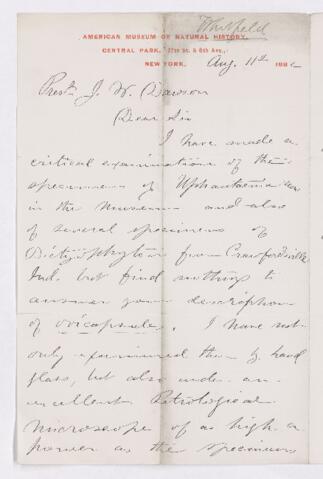 Whitfield
AMERICAN MUSEUM OF NATURAL HISTORY,
CENTRAL PARK, 77th St. & 8th Ave.,
NEW YORK, Aug. 11th 188
Prest J. W. Dawson
Dear Sir
I have made a
critical examination of the
specimens of Uphantaenia
in the Museum and also
of several specimens of
Dictyophyton from Crawfordsville
Ind. but find nothing to
answer your description
of ovicapsules. I have not
only examined them by hand
glass, but also under an
excellent Petrological
microscope of as high a
power as the specimens